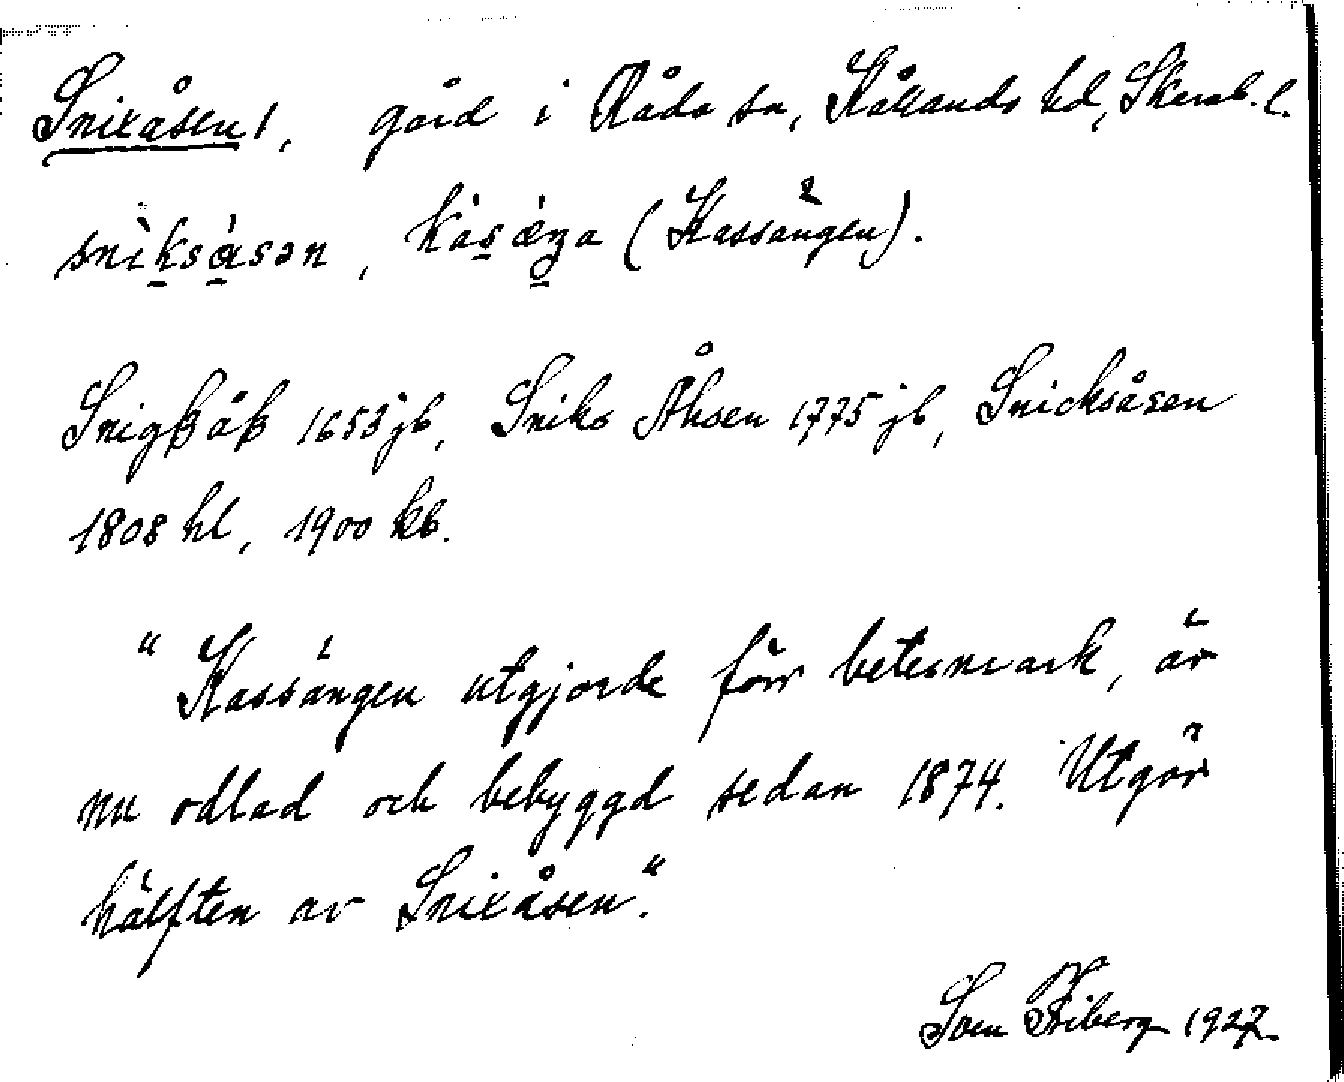 Snixåsen 1, gård i Råda sn, Kållands hd, Skarab. l.
sniksåsən, kasæŋa (Kassängen).
Snigßåß 1653 jb, Sniks Åhsen 1775 jb, Snicksåsen
1808 hl, 1900 kb.
"Kassängen utgjorde förr betesmark, är
nu odlad och bebyggd sedan 1874. Utgör
hälften av Snixåsen."
Sven Friberg 1927.